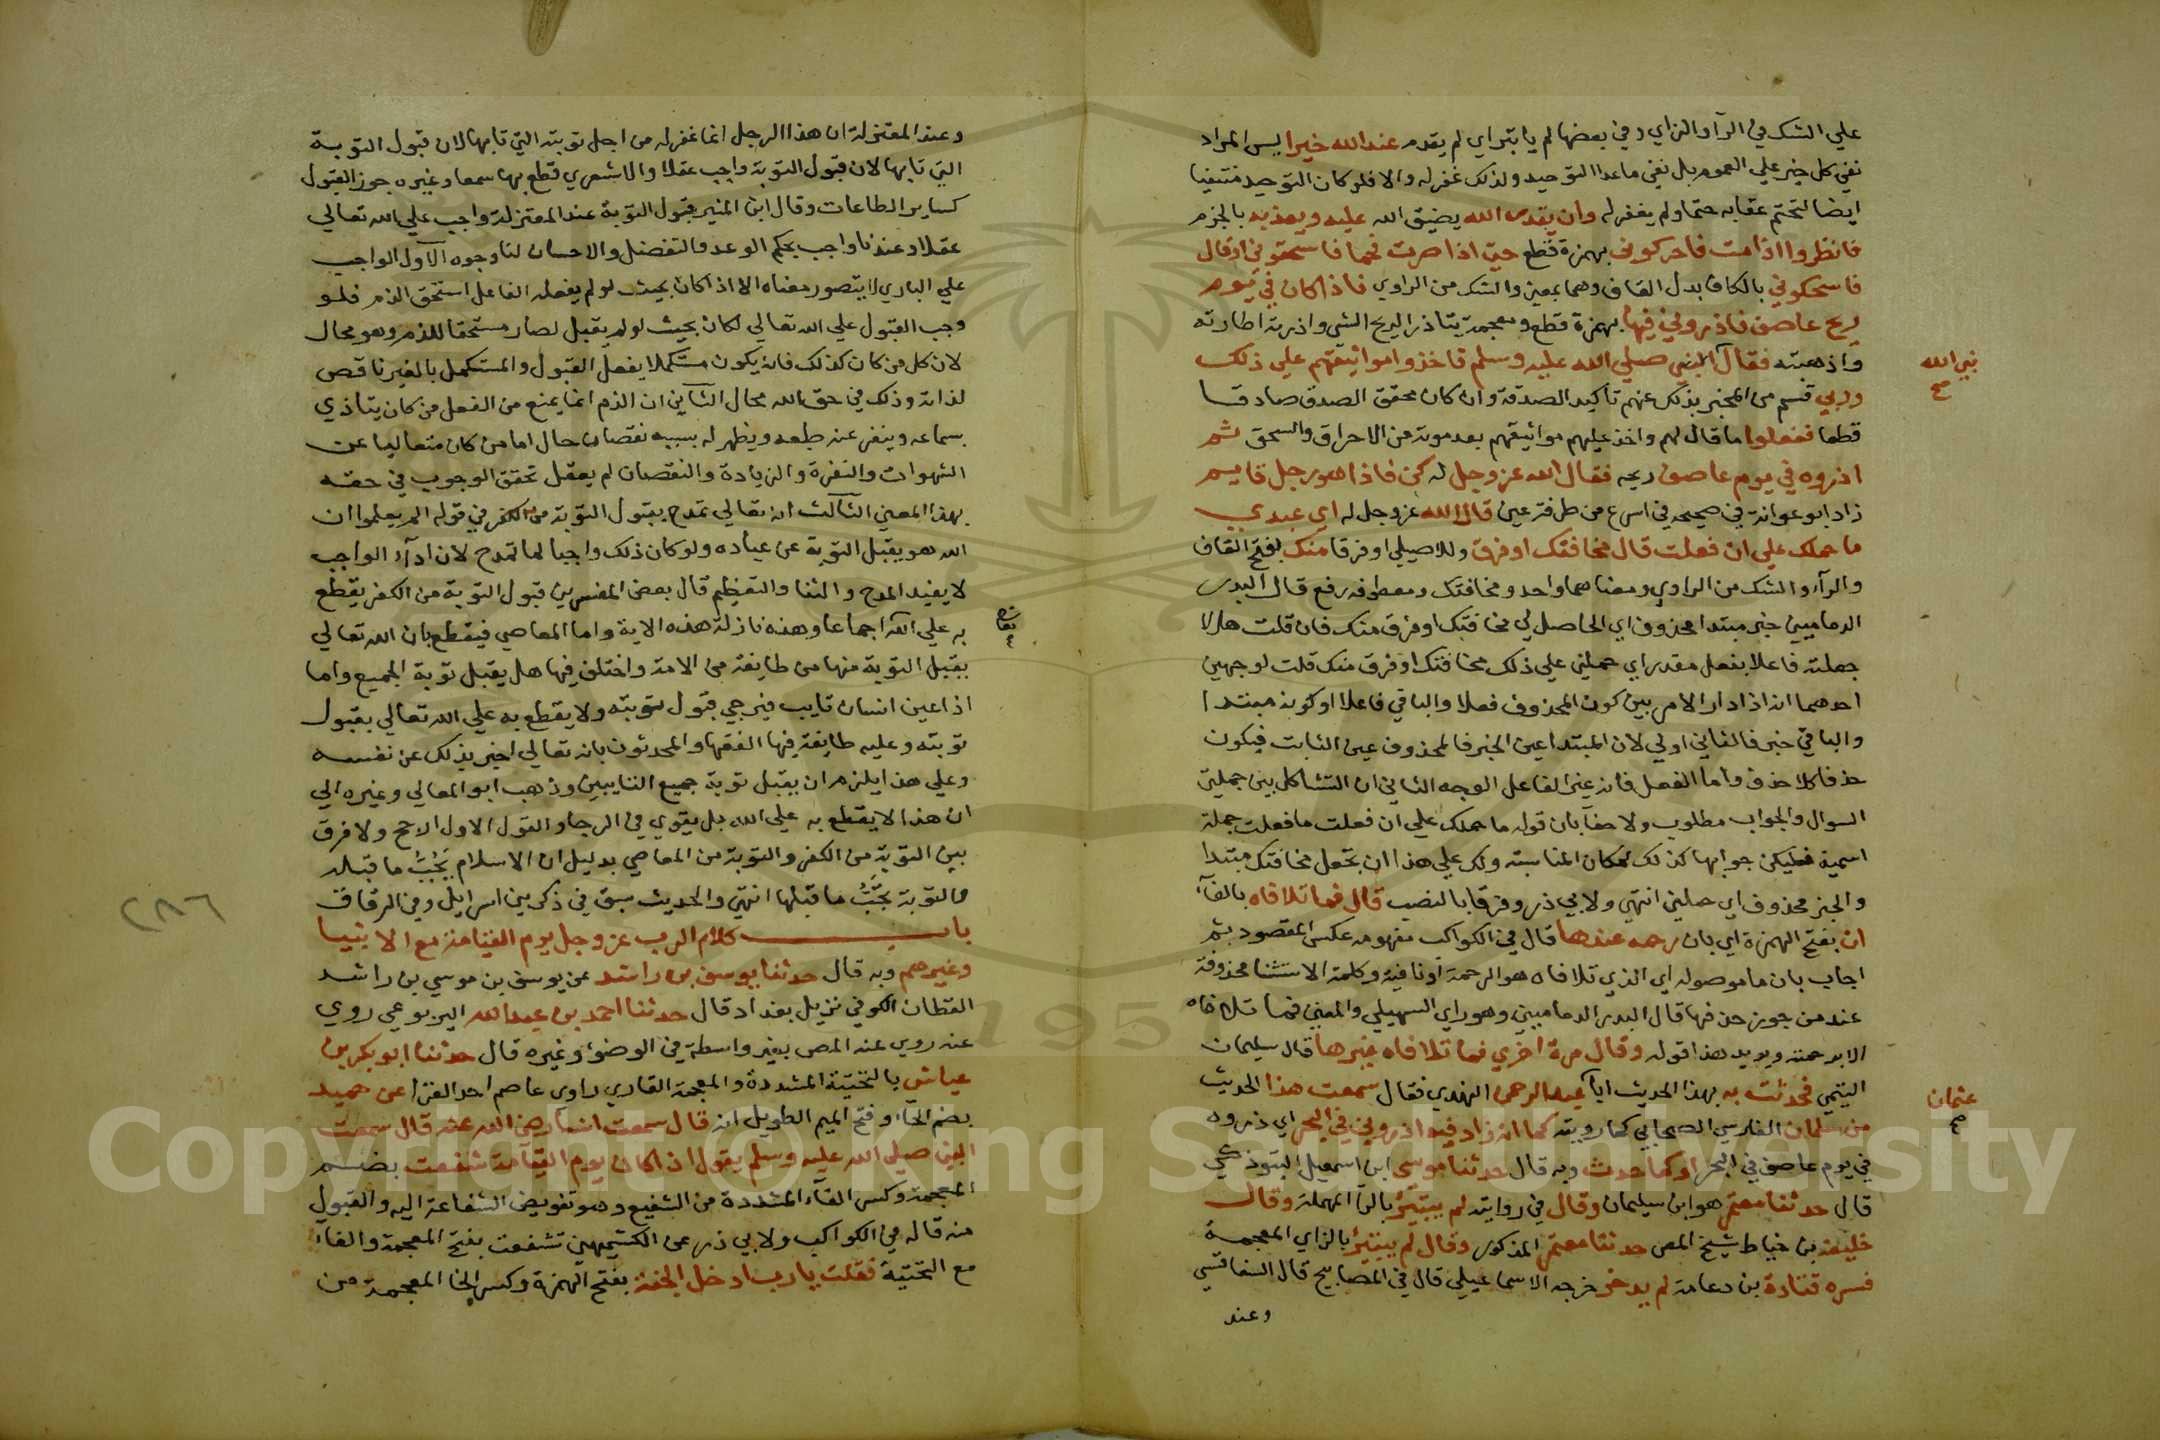 علي الشك في الرآ والزاي وفي بعضها لم يابتر اي لم يقدم عند الله خيرا ليس المراد
نفي كل خير علي العموم بل نفي ماعدا التوحيد ولذلك غفر له والا فلو كان التوحيد منتفيا
ايضا لتحتم عقابه حتما ولم يغفر له وان يقدر الله يضيق الله عليه ويعذبه بالجزم
فانظروا اذا مت فاحرقوني بهمزة قطع حتي اذا صرت فحما فاسحقوني او قال
فاسحكوني بالكاف بدل القاف وهما بمعني والشك من الراوي فاذا كان في يوم
ريح عاصف فاذروني فيها بهمزة قطع ومعجمة يقال ذرا الريح الشي واذرته اطارته
واذهبته فقال النبي صلي الله عليه وسلم فاخذ مواثيقهم علي ذلك
نبي الله
وربي قسم من المخبر بذلك عنهم تأكيد الصدقه وان كان محقق الصدق صادقا
قطعا ففعلوا ما قال لهم واخذ عليهم مواثيقهم بعد موته من الاحراق والسحق ثم
اذروه في يوم عاصف ريحه فقال الله عز وجل له كن فاذا هو رجل قايم
زاد ابو عوانة في صحيحه في اسرع من طرفة عين قال الله عز وجل له اي عبدي
ما حملك علي ان فعلت ما فعلت قال مخافتك او فرق وللاصيلي او فرقا منك بفتح الفاف
والرآء والشك من الراوي ومعناهما واحد ومخافتك ومعطوفه رفع قال البدر
الدماميني خبر مبتدا محذوف اي الحاصل لي مخافتك او فرق منك فان قلت هلا
جعلته فاعلا بفعل مقدر اي حملني علي ذلك مخافتك او فرق منك قلت لوجهين
احدهما انه اذا دار الامر بين كون المحذوف فعلا والباقي فاعلا او كونه مبتدا
والباقي خبر فالثاني اولي لان المبتدا عين الخبر فالمحذوف عين الثابت فيكون
حذفا كلا حذف واما الفعل فانه غير الفاعل الوجه الثاني ان التشاكل بين جملتي
السوال والجواب مطلوب ولا خفآ بان قوله ما حملك علي ان فعلت ما فعلت جملة
اسمية فليكن جوابها كذلك لمكان المناسبة ولك علي هذا ان تجعل مخافتك مبتدا
والخبر محذوف اي حملتني انتهي ولابي ذر وفرقا بالنصب قال فما تلافاه بالفآء
ان بفتح الهمزة اي بان رحمه عندها قال في الكواكب مفهومه عكس المقصود ثم
اجاب بان ما موصولة اي الذي تلافاه هو الرحمة او نافية وكلمة الاستثنا محذوفة
عند من جوز حذفها قال البدر الدماميني وهو راي السهيلي والمعني فما تلافاه
الا برحمته ويويد هذا قوله وقال مرة اخري فما تلافاه غيرها قال سليمان
التيمي فحدثت به بهذا الحديث ابا عبد الرحمن النهدي فقال سمعت هذا الحديث
عثمان
من سلمان الفارسي الصحابي كما رويته كما انه زاد فيه اذروني في البحر اي ذروه
في يوم عاصف في البحر او كما حدث وبه قال حدثنا موسي ابن اسمعيل التبوذكي
قال حدثنا معتمر هو ابن سليمان وقال في روايته لم يبتئر بالرآ المهملة وقال
خليفة بن خياط شيخ المص حدثنا معتمر المذكور وقال لم يبتئز بالزاي المعجمة
فسره قتادة بن دعامة لم يدخر خرجه الاسماعيلي قال في المصابيح قال السفاقسي
وعند
وعند المعتزلة ان هذا الرجل انما غفر له من اجل توبته التي تابها لان قبول التوبة
التي تابها لان قبول التوبة واجب عقلا والاشعري قطع بها سمعا وغيره جوز القبول
كساير الطاعات وقال ابن المنير قبول التوبة عند المعتزلة واجب علي الله تعالي
عقلا وعندنا واجب بحكم الوعد والتفضل والاحسان لنا وجوه الاول الواجب
علي الباري لا يتصور معناه الا اذا كان بحيث لو لم يفعله الفاعل استحق الذم فلو
وجب القبول علي الله تعالي لكان بحيث لو لم يقبل لصار مستحقا للذم وهو محال
لان كل من كان كذلك فانه يكون مستكملا بفعل القبول والمستكمل بالغير ناقص
لذاته وذلك في حق الله محال الثاني ان الذم انما يمنع من الفعل من كان يتاذي
بسماعه وينفر عنه طبعه ويظهر له بسببه نقصان حال اما من كان متعاليا عن
الشهوات والنفرة والزيادة والنقصان لم يعقل تحقق الوجوب في حقه
بهذا المعني الثالث انه تعالي تمدح بقبول التوبة من الكفر في قوله الم يعلموا ان
الله هو يقبل التوبة عن عباده ولو كان ذلك واجبا لما تمدح لان ادآء الواجب
لا يفيد المدح والثنا والتعظيم قال بعض المفسرين قبول التوبة من الكفر يقطع
به علي الله اجماعا وهذه نازلة هذه الاية واما المعاصي فيقطع بان الله تعالي
بقبل التوبة منها من طايفة من الامة واختلف فيها هل يقبل توبة الجميع واما
اذا عين انسان تايب فيرجي قبول توبته ولا يقطع به علي الله تعالي بقبول
توبته وعليه طايفة فيها الفقها والمحدثون بانه تعالي اخبر بذلك عن نفسه
وعلي هذا يلزم ان يقبل توبة جميع التايبين وذهب ابو المعالي وغيره الي
ان هذا لا يقطع به علي الله بل يقوي في الرجا والقول الاول الاحح ولا فرق
بين التوبة من الكفر والتوبة من المعاصي بدليل ان الاسلام يَجُبُّ ما قبله
والتوبة تجُبُّ ما قبلها انتهي والحديث سبق في ذكر بني اسرايل وفي الرقاق
٢٨٦
باب كلام الرب عز وجل يوم القيامة مع الانبيا
وغيرهم وبه قال حدثنا يوسف بن راشد عن يوسف بن موسي بن راشد
القطان الكوفي نزيل بغداد قال حدثنا احمد بن عبد الله اليربوعي روي
عنه روي عنه المص بغير واسطة في الوضوء وغيره قال حدثنا ابو بكر بن
عياش بالتحتية المشددة والمعجمة القاري راوي عاصم احد القرا عن حميد
بضم الحاء وفتح الميم الطويل انه قال سمعت انسا رضي الله عنه قال سمعت
النبي صلي الله عليه وسلم يقول اذا كان يوم القيامة شفعت بضم
المعجمة وكسر الفآء المشددة من الشفيع وهو تفويض الشفاعة اليه والقبول
منه قاله في الكواكب ولابي ذر عن الكشميهني تشفعت بفتح المعجمة والفآء
مع التحتية فقلت يا رب ادخل الجنة بفتح الهمزة وكسر الخا المعجمة من
Copyright © King Saud University
1957